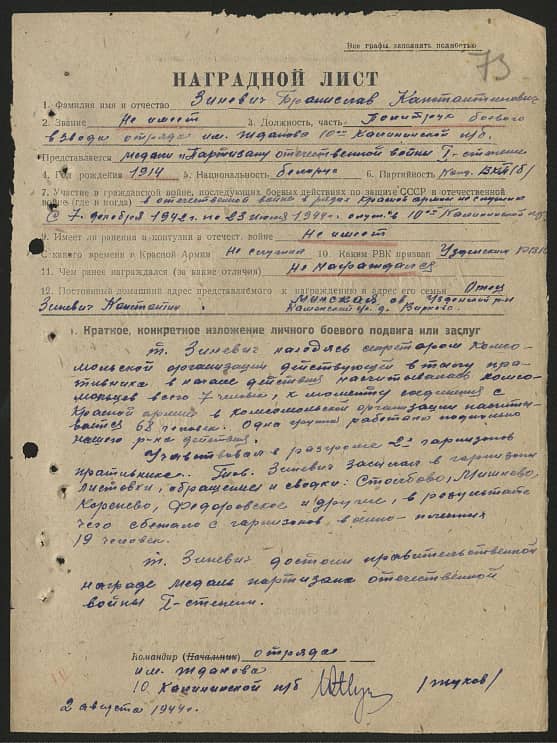 Все графы заполнять полностью
73
НАГРАДНОЙ ЛИСТ
1. Фамилия имя и отчество Зиневич Бранислав Канстантинович
2. Звание Не имеет 3. Должность, часть Политрук боевого
взвода отряда им. Жданова 10ой Калининской п/б.
Представляется медали "Партизану отечественной войны I-степени
4. Год рождения 1914 5. Национальность белорус 6. Партийность Канд. ВКП(б)
7. Участие в гражданской войне, последующих боевых действиях по защите СССР и отечественной
войне (где и когда) в отечественной войне в рядах Красной армии не служил
С 7 декабря 1942 г. по 23 июня 1944 г. в 10ой Калининской п/б.
9. Имеет ли ранения и контузии в отечест. войне Не имеет
С какого времени в Красной Армии Не служил 10. Каким РВК призван Узденским
11. Чем ранее награждался (за какие отличия) Не награждался
12. Постоянный домашний адрес представляемого к награждению и адрес его семьи Отец
Зиневич Константин Минская об. Узденский р-н
Каменский с/с д.
Краткое, конкретное изложение личного боевого подвига или заслуг
т. Зиневич находясь секретарем комсо-
мольской организации действующей в тылу пра-
тивника в начале действия насчитывалась комсо-
мольцев всего 7 человек, к моменту соединения с
Красной армией в комсомольской организации насчиты-
вается 68 человек. Одна группа работала подпольно
нашего р-на действия.
Участвовал в разгроме 2х гарнизонов
пративника. Тов. Зиневич засылал в гарнизоны
листовки, обращения и сводки: Столбово, Мишнево,
Коренево, Федоровское и другие, в результате
чего сбежало с гарнизонов, военно-пленных
19 человек.
т. Зиневич достоин правительственной
награде медаль партизана отечественной
войны I-степени.
Командир (Начальник) отряда
им. Жданова
10. Калининской п/б /Жуков/
2 августа 1944 г.